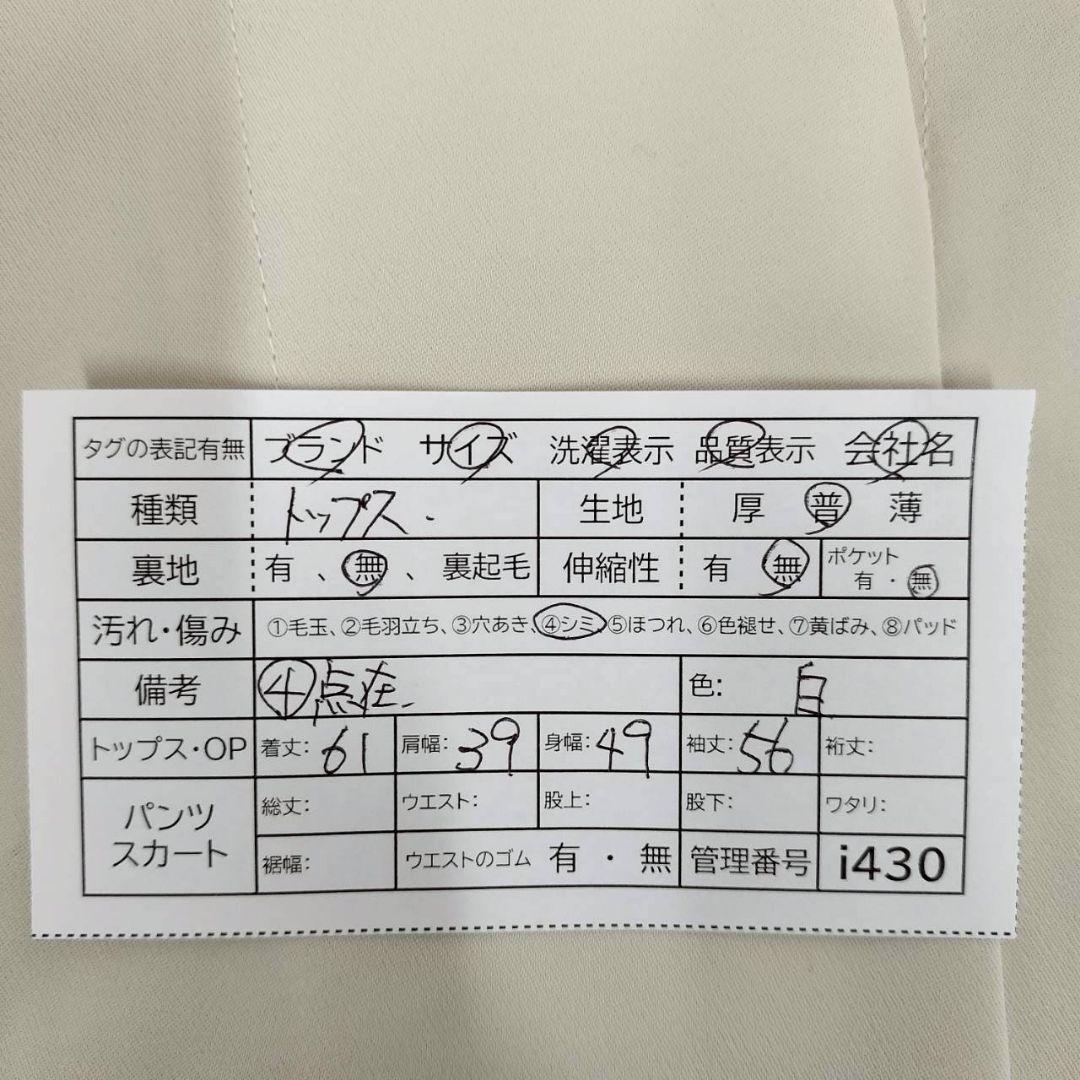 タグの表記有無 ブランド サイズ 洗濯表示 品質表示 会社名
種類 トップス. 生地 厚 普 薄
裏地 有 、無 、裏起毛 伸縮性 有 無 ポケット 有 ・ 無
汚れ・傷み ①毛玉、②毛羽立ち、③穴あき、④シミ、⑤ほつれ、⑥色褪せ、⑦黄ばみ、⑧パッド
備考 ④点在. 色: 白
トップス・OP 着丈: 61 肩幅: 39 身幅: 49 袖丈: 56 裄丈:
パンツ スカート 総丈: ウエスト: 股上: 股下: ワタリ:
裾幅: ウエストのゴム 有 ・ 無 管理番号 i430